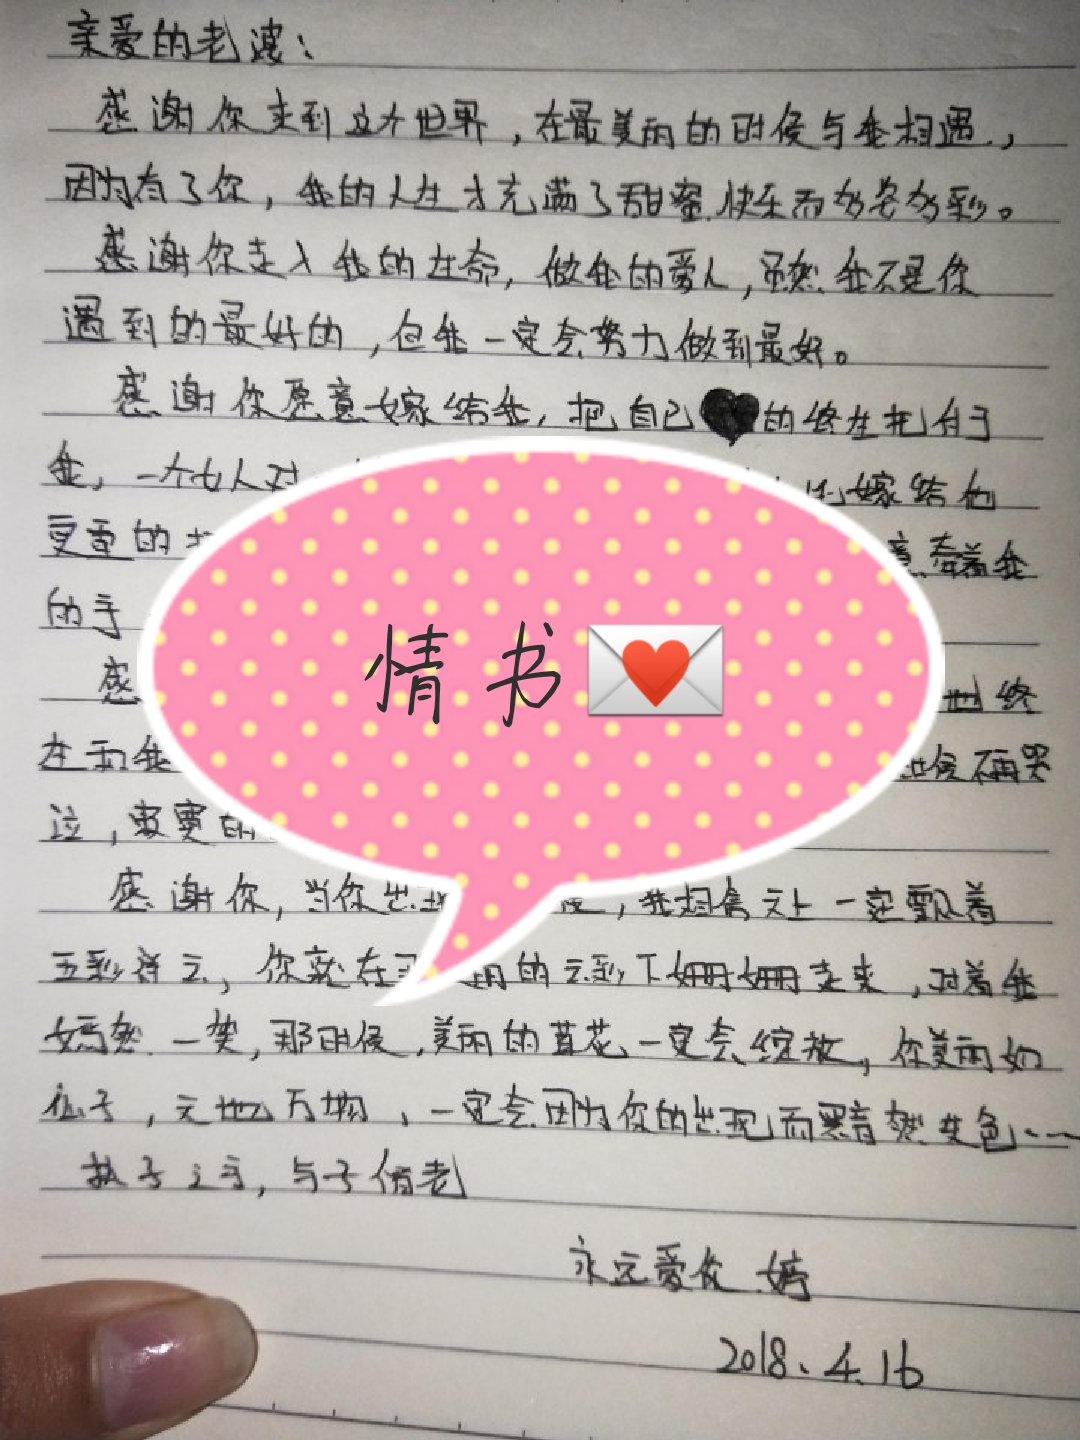 亲爱的老婆：
感谢你来到这个世界，在最美丽的时候与我相遇，
因为有了你，我的人生才充满了甜蜜快乐而多姿多彩。
感谢你走入我的生命，做我的爱人，虽然我不是你
遇到的最好的，但我一定会努力做到最好。
感谢你愿意嫁给我，把自己的终生托付于
我，一个女人对 嫁给他
更重的 意牵着我
的手
感 也终
在和我 会不再哭
泣，寂寞的
情书
感谢你，当你出现 ，我相信天上一定飘着
五彩祥云，你就在 的云彩下姗姗走来，对着我
嫣然一笑，那时候，美丽的莲花一定会绽放，你美丽如
仙子，天地万物，一定会因为你的出现而黯然失色……
执子之手，与子偕老
永远爱你 婷
2018.4.16